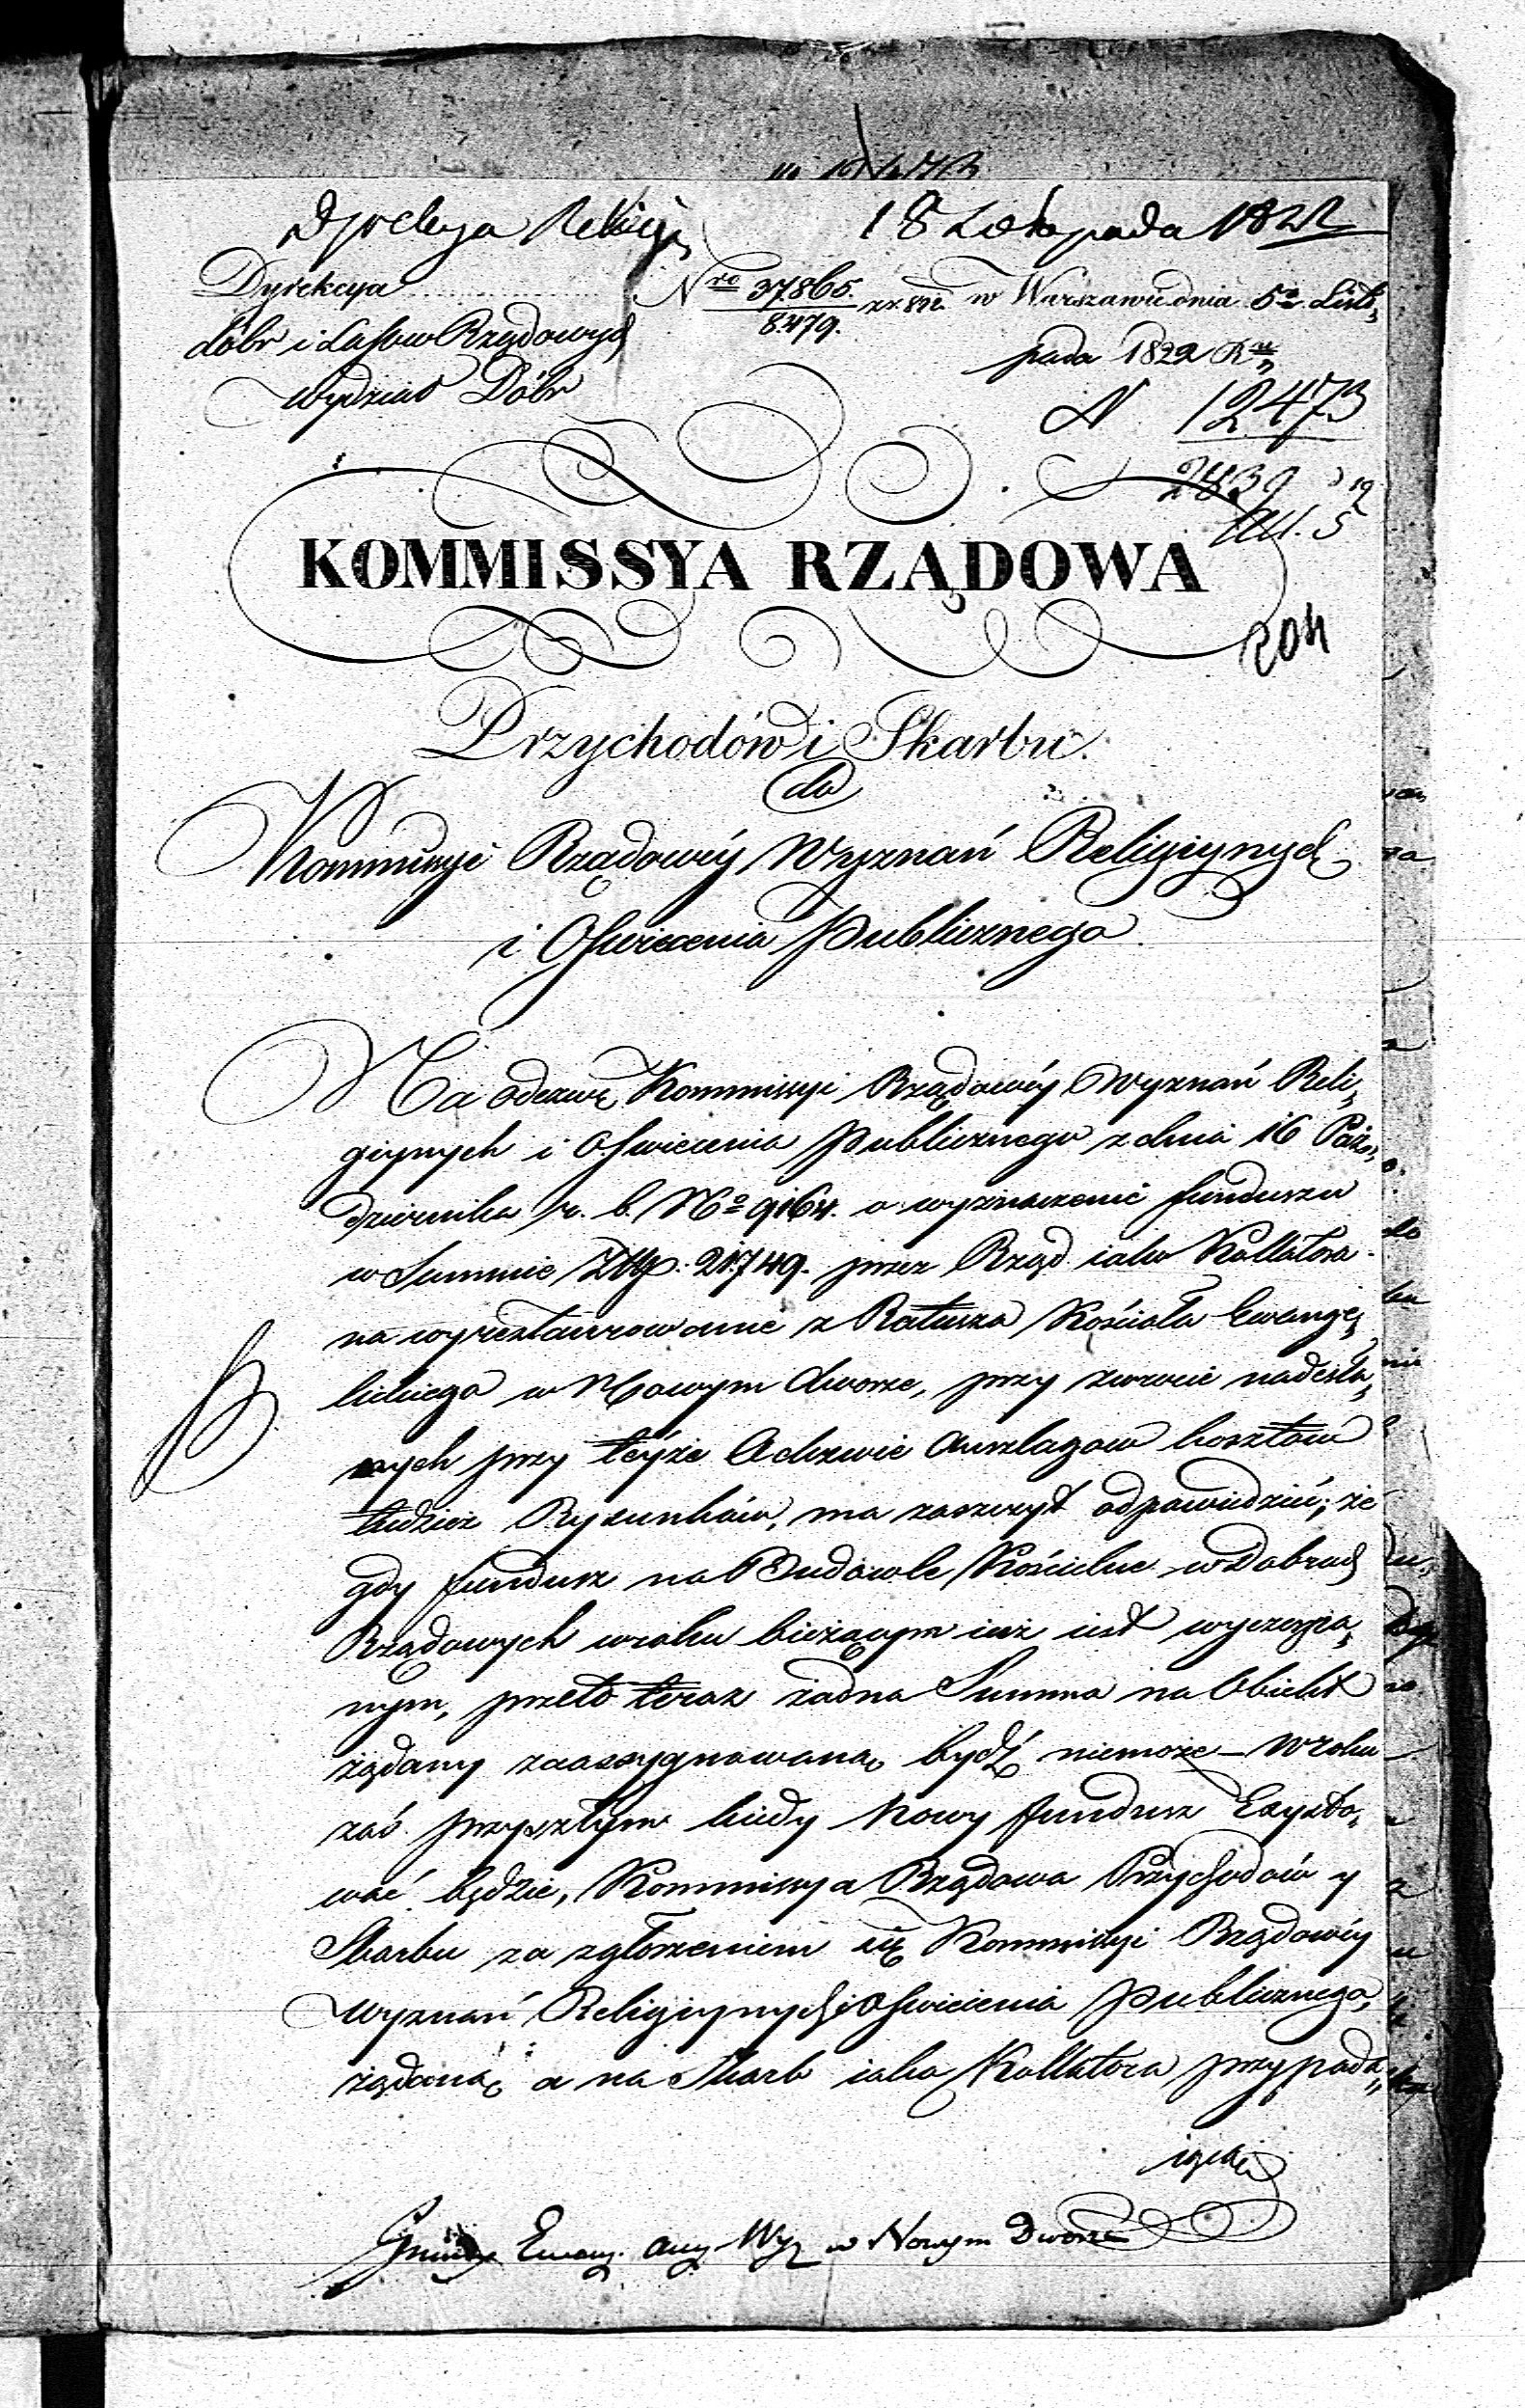 Dyrekcya Religij
18 Listopada 1822
Dyrekcya
Nro 37865. z r. 822. w Warszawie dnia 5o Listo„
8479.
dóbr i Lasow Rządowych
pada 1822 Ru
Wydział Dóbr
N 12473
2839
204
KOMMISSYA RZĄDOWA
Przychodów i Skarbu.
do
Kommissyi Rządowéy Wyznań Religiynych
i Oswiecenia Publicznego
Na odezwę Kommissyi Rządowéy Wyznań Reli„
giynych i Oswiecenia Publicznego z dnia 16 Paź„
dziernika r. b. No 9164. o wyznaczenie funduszu
w Summie Złtp. 21749. przez Rząd iako Kollatora
na wyrestaurowanie z Ratusza Kościoła Ewange„
lickiego w Nowym dworze, przy zwrocie nadesła„
nych przy teyże Odezwie Anszlagow kosztów
tudzież Rysunków, ma zaszczyt odpowiedzieć; że
gdy fundusz na Budowle Kościelne w Dobrach
Rządowych w roku bieżącym iuż iest wyczerpa„
nym, przeto teraz żadna Summa na Obiekt
żądany zaassygnowaną bydź niemoże – W roku
zaś przyszłym kiedy Nowy fundusz Exysto„
wać będzie, Kommissya Rządowa Przychodów y
Skarbu za zgłoszeniem się Kommissyi Rządowéy
Wyznań Religiynych i Oswiecenia Publicznego,
żądaną a na Skarb iako Kollatora przypada„
iącą
Gminy Ewang. Aug. Wyz w Nowym Dworze